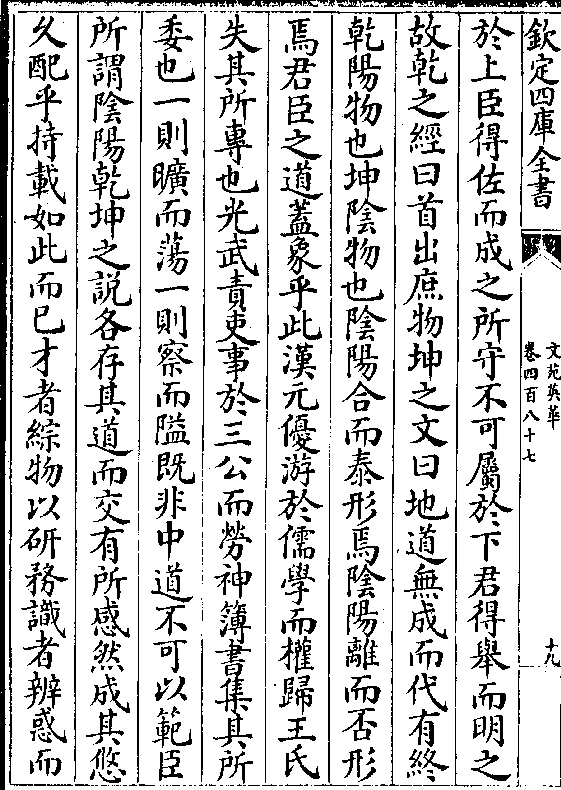 欽定四庫全書
文苑英華
卷四百八十七
十九
於上臣得佐而成之所守不可屬於下君得舉而明之
故乾之經曰首出庶物坤之文曰地道無成而代有終
乾陽物也坤陰物也陰陽合而泰形焉陰陽離而否形
焉君臣之道蓋象乎此漢元優游於儒學而權歸王氏
失其所專也光武責吏事於三公而勞神簿書集其所
委也一則曠而蕩一則察而隘既非中道不可以範臣
所謂陰陽乾坤之說各存其道而交有所感然成其悠
久配乎持載如此而已才者綜物以研務識者辨惑而